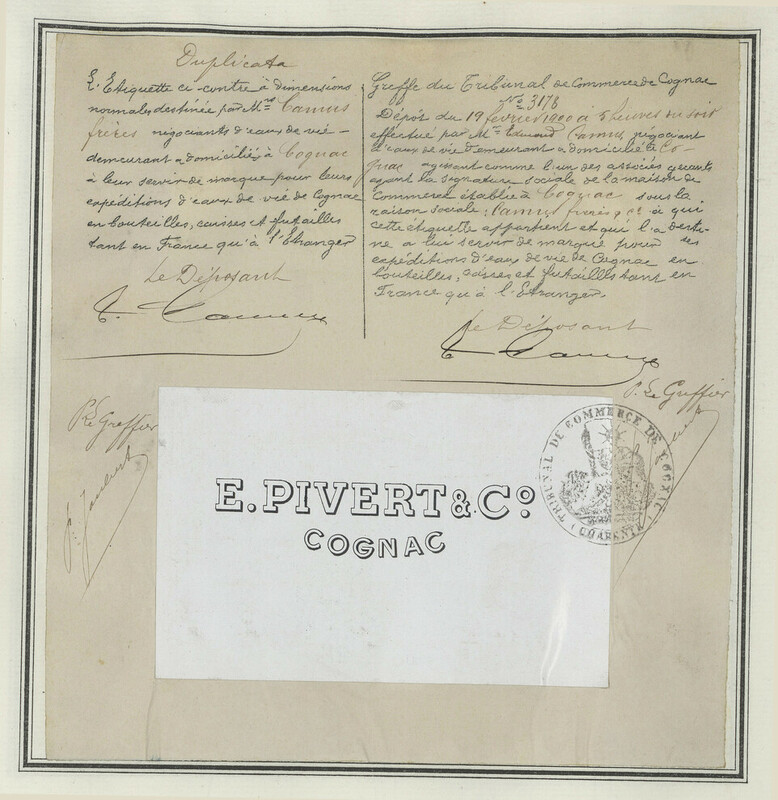 Duplicata
L'Etiquette ci-contre à dimensions
normales destinée par Mrs Camus
frères négociants d'eaux de vie -
demeurant & domiciliés à Cognac
à leur servir de marque pour leurs
expéditions d'eaux de vie de Cognac
en bouteilles, caisses et futailles
tant en France qu'à l'Etranger
Le Déposant
E. Camus
Greffe du Tribunal de Commerce de Cognac
No 3178
Dépôt du 19 février 1900 à 5 heures du soir
effectué par Mr Edouard Camus, négociant
d'eaux de vie demeurant & domicilié à Co-
gnac agissant comme l'un des associés gérants
ayant la signature sociale de la maison de
Commerce établie à Cognac sous la
raison sociale: Camus frères & Ce à qui
cette étiquette appartient et qui l'a desti-
né a leur servir de marque pour ses
expéditions d'eaux de vie de Cognac en
bouteilles, caisses et futailles tant en
France qu'à l'Etranger.
Le Déposant
E. Camus
P. Le Greffier
P. Le Greffier
E. PIVERT & Co.
COGNAC
TRIBUNAL DE COMMERCE DE COGNAC
(CHARENTE)